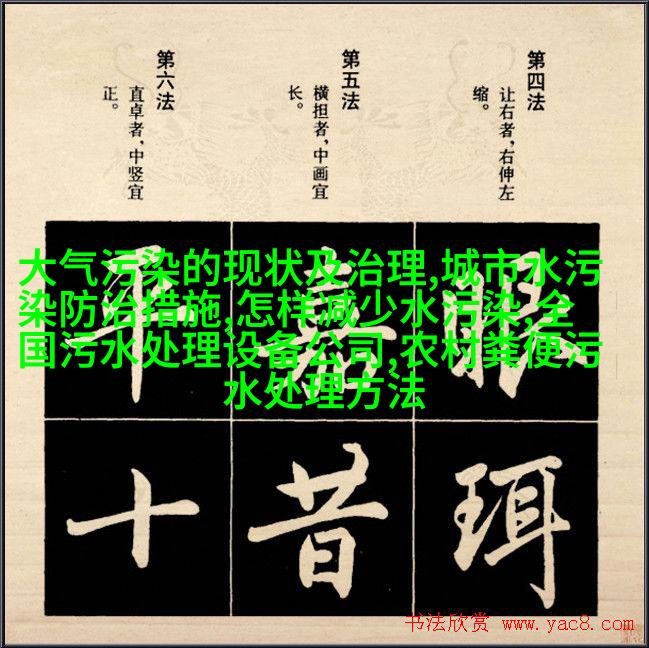 第四法
让右者，右伸左
缩。
第五法
横担者，中画宜
长。
第六法
直卓者，中竖宜
正。
眼 嘉 平
珥 昔 十
大气污染的现状及治理,城市水污
染防治措施,怎样减少水污染,全
国污水处理设备公司,农村粪便污
水处理方法
书法欣赏 www.yac8.com